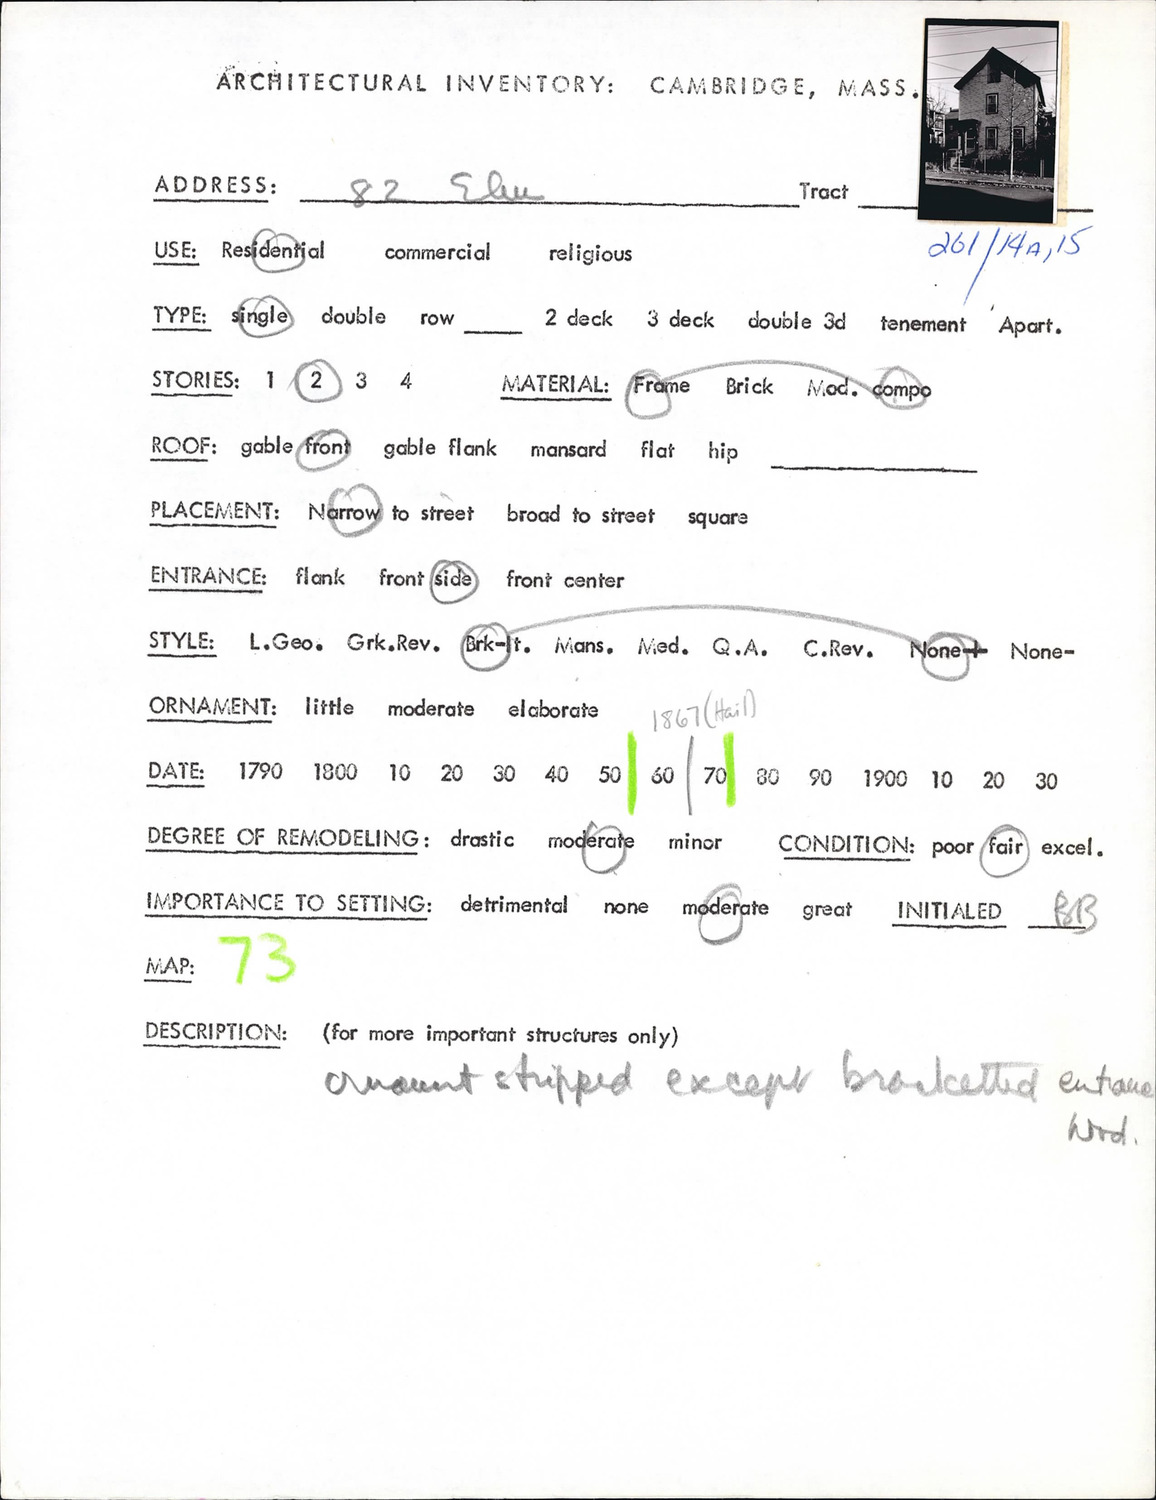 ARCHITECTURAL INVENTORY: CAMBRIDGE, MASS.
ADDRESS: 82 Elm Tract
261/14A,15
USE: Residential commercial religious
TYPE: single double row ____ 2 deck 3 deck double 3d tenement Apart.
STORIES: 1 2 3 4 MATERIAL: Frame Brick Mod. compo
ROOF: gable front gable flank mansard flat hip
PLACEMENT: Narrow to street broad to street square
ENTRANCE: flank front side front center
STYLE: L.Geo. Grk.Rev. Brk-It. Mans. Med. Q.A. C.Rev. None+ None-
ORNAMENT: little moderate elaborate
1867 (Hail)
DATE: 1790 1800 10 20 30 40 50 60 70 80 90 1900 10 20 30
DEGREE OF REMODELING: drastic moderate minor CONDITION: poor fair excel.
IMPORTANCE TO SETTING: detrimental none moderate great INITIALED BB
MAP: 73
DESCRIPTION: (for more important structures only)
ornament stripped except bracketted entrance
hood.